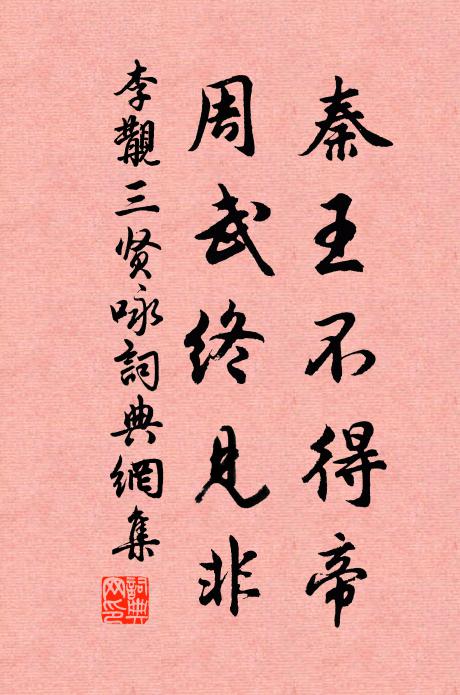 秦王不得帝
周武终見非
李觀三贤咏詞典網集
詞典
网印